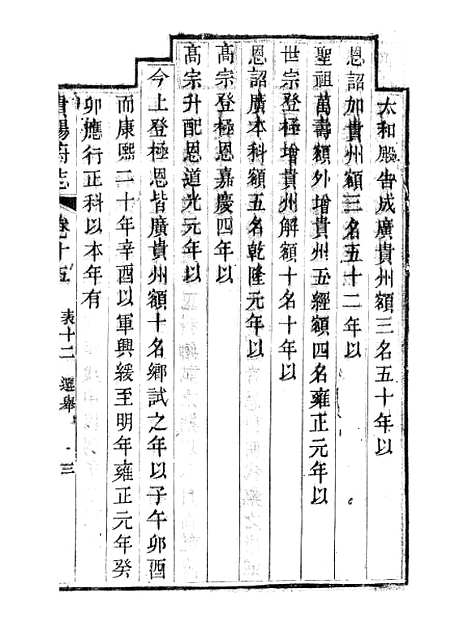 太和殿告成廣貴州額三名五十年以
恩詔加貴州額三名五十二年以
聖祖萬壽額外增貴州五經額四名雍正元年以
世宗登極增貴州解額十名十年以
恩詔廣本科額五名乾隆元年以
高宗登極恩嘉慶四年以
高宗升配恩道光元年以
今上登極恩皆廣貴州額十名鄉試之年以子午卯酉
而康熙二十年辛酉以軍興緩至明年雍正元年癸
卯應行正科以本年有
貴陽府志 卷十五 表十二 選舉 十三